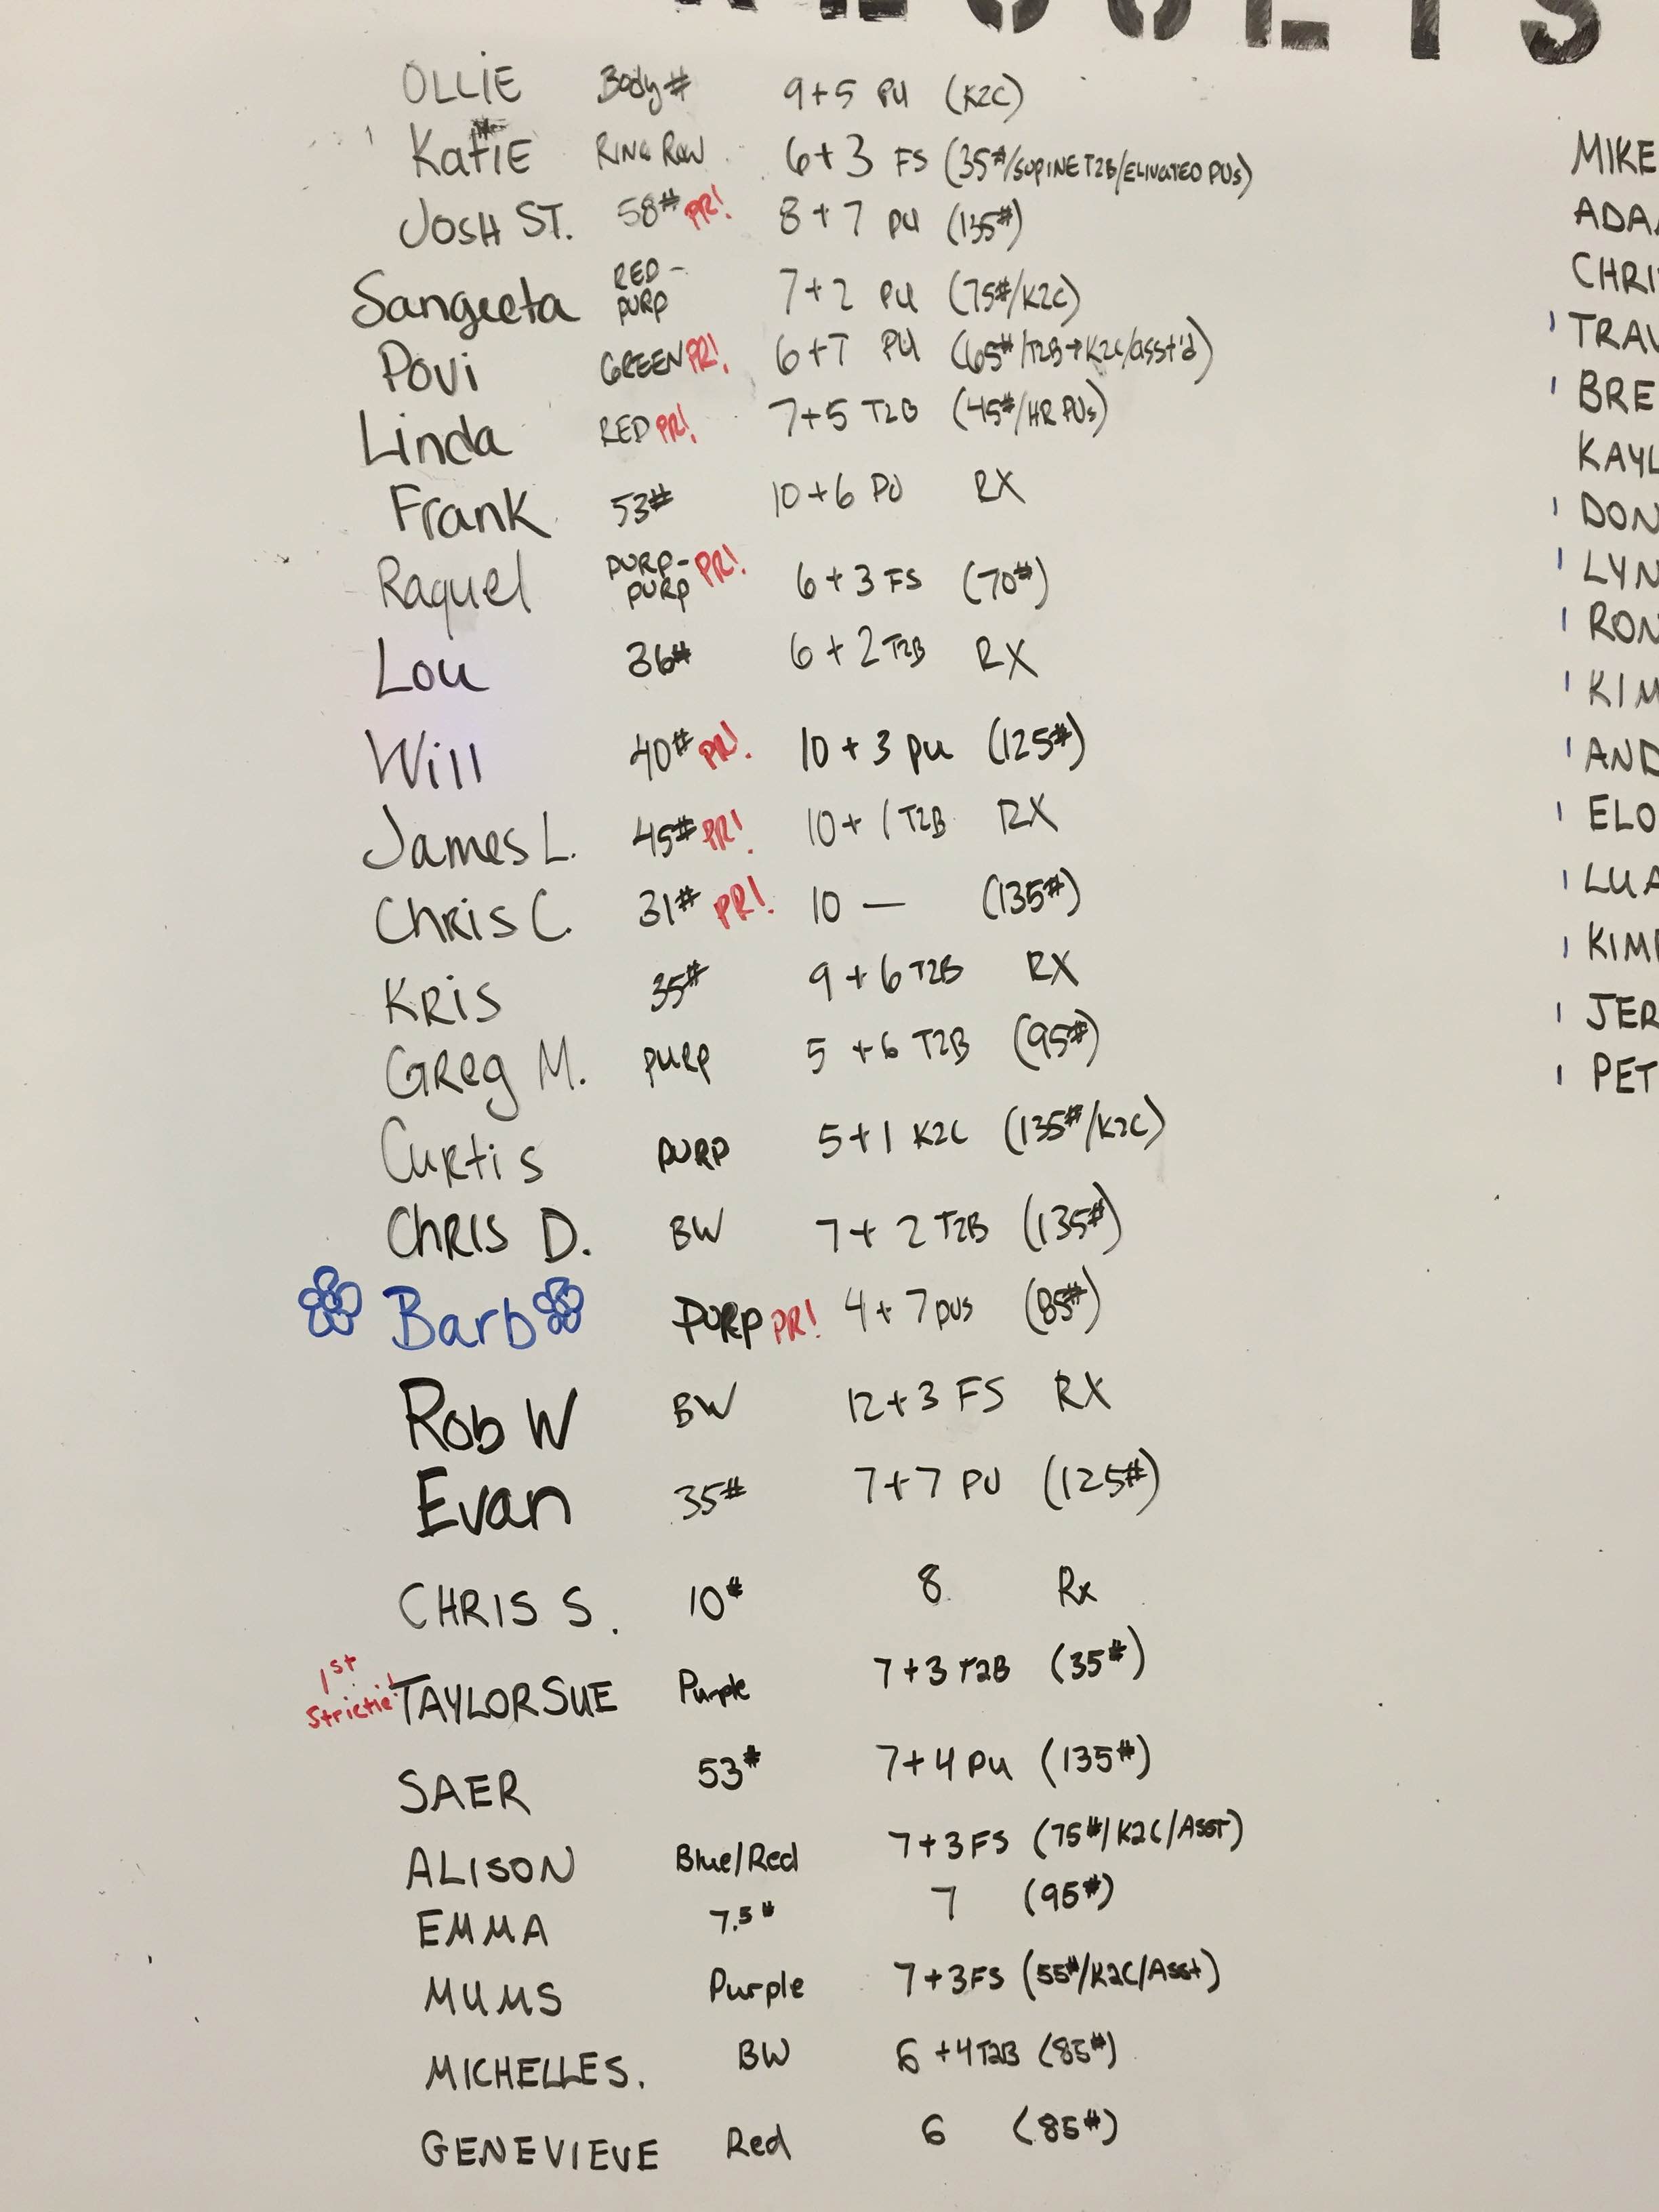 OLLIE Body# 9+5 PU (K2C)
KatIE RING ROW 6+3 FS (35#/SUPINE T2B/ELIVATED PUs)
JOSH ST. 58# PR! 8+7 PU (135#)
Sangeeta RED-PURP 7+2 PU (75#/K2C)
Povi GREEN PR! 6+7 PU (65#/T2B→K2C/asst'd)
Linda RED PR! 7+5 T2B (45#/HR PUs)
Frank 53# 10+6 PU RX
Raquel PURP-PURP PR! 6+3 FS (70#)
Lou 36# 6+2 T2B RX
Will 40# PR! 10+3 PU (125#)
James L. 45# PR! 10+1 T2B RX
Chris C. 31# PR! 10 — (135#)
KRis 35# 9+6 T2B RX
GReg M. PURP 5+6 T2B (95#)
CuRtis PURP 5+1 K2C (135#/K2C)
ChRIS D. BW 7+2 T2B (135#)
Barb PURP PR! 4+7 PUs (85#)
Rob W BW 12+3 FS RX
Evan 35# 7+7 PU (125#)
CHRIS S. 10# 8 Rx
1st Strictie! TAYLOR SUE Purple 7+3 T2B (35#)
SAER 53# 7+4 PU (135#)
ALISON Blue/Red 7+3 FS (75#/K2C/ASST)
EMMA 7.5# 7 (95#)
MUMS Purple 7+3 FS (55#/K2C/Asst)
MICHELLE S. BW 6+4 T2B (85#)
GENEVIEVE Red 6 (85#)
MIKE
ADA
CHRI
TRAV
BRE
KAYL
DON
LYN
RON
KIM
AND
ELO
LUA
KIM
JER
PET